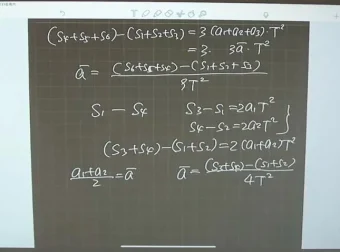 (S4+S5+S6)-(S1+S2+S3) = 3(a1+a2+a3)·T²
= 3. 3a̅·T²
a̅ = (S6+S5+S4)-(S1+S2+S3) / 9T²
S1 — S4 S3-S1=2a1T²
S4-S2=2a2T²
(S3+S4)-(S1+S2)=2(a1+a2)T²
a1+a2 / 2 = a̅ a̅ = (S3+S4)-(S1+S2) / 4T²